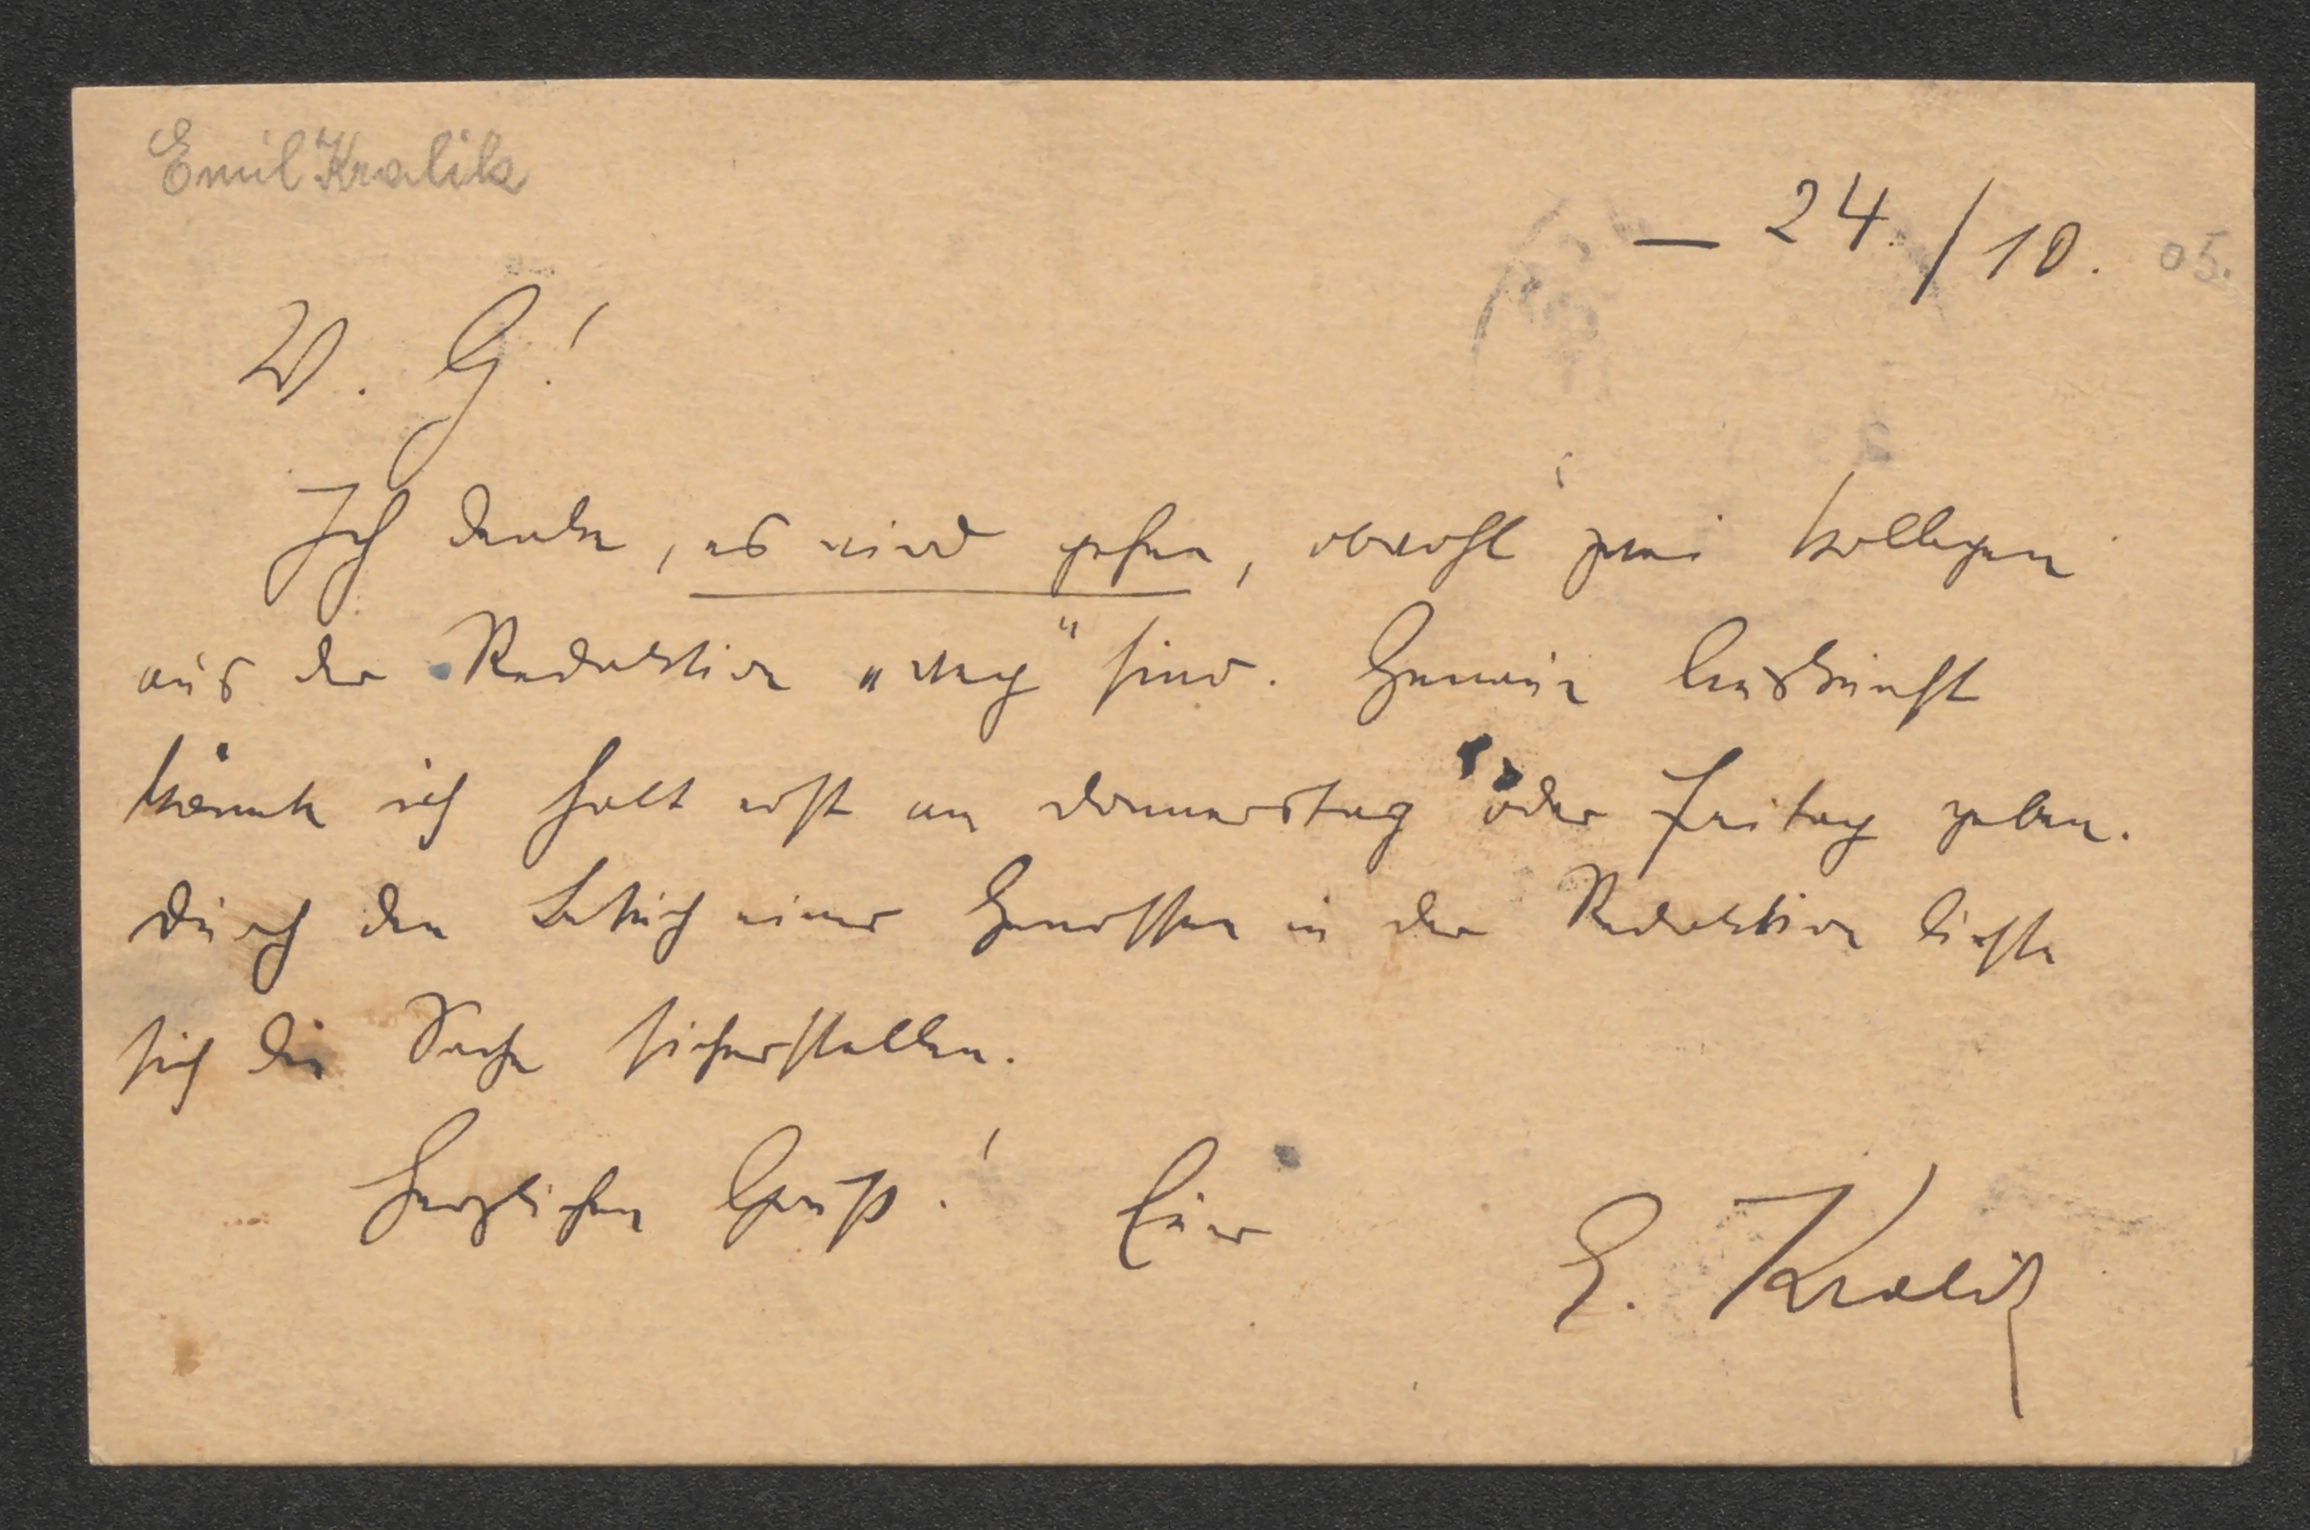 Emil Kralik
— 24./10. 05.
W. G!
Ich denke, es wird gehen, obwohl zwei Kollegen
aus der Redaktion „weg“ sind. Genaue Auskunft
könnte ich halt erst am Donnerstag oder Freitag geben.
Durch den Besuch eines Genossen in der Redaktion ließe
sich die Sache sicherstellen.
Herzlichen Gruß! Euer
E. Kralik